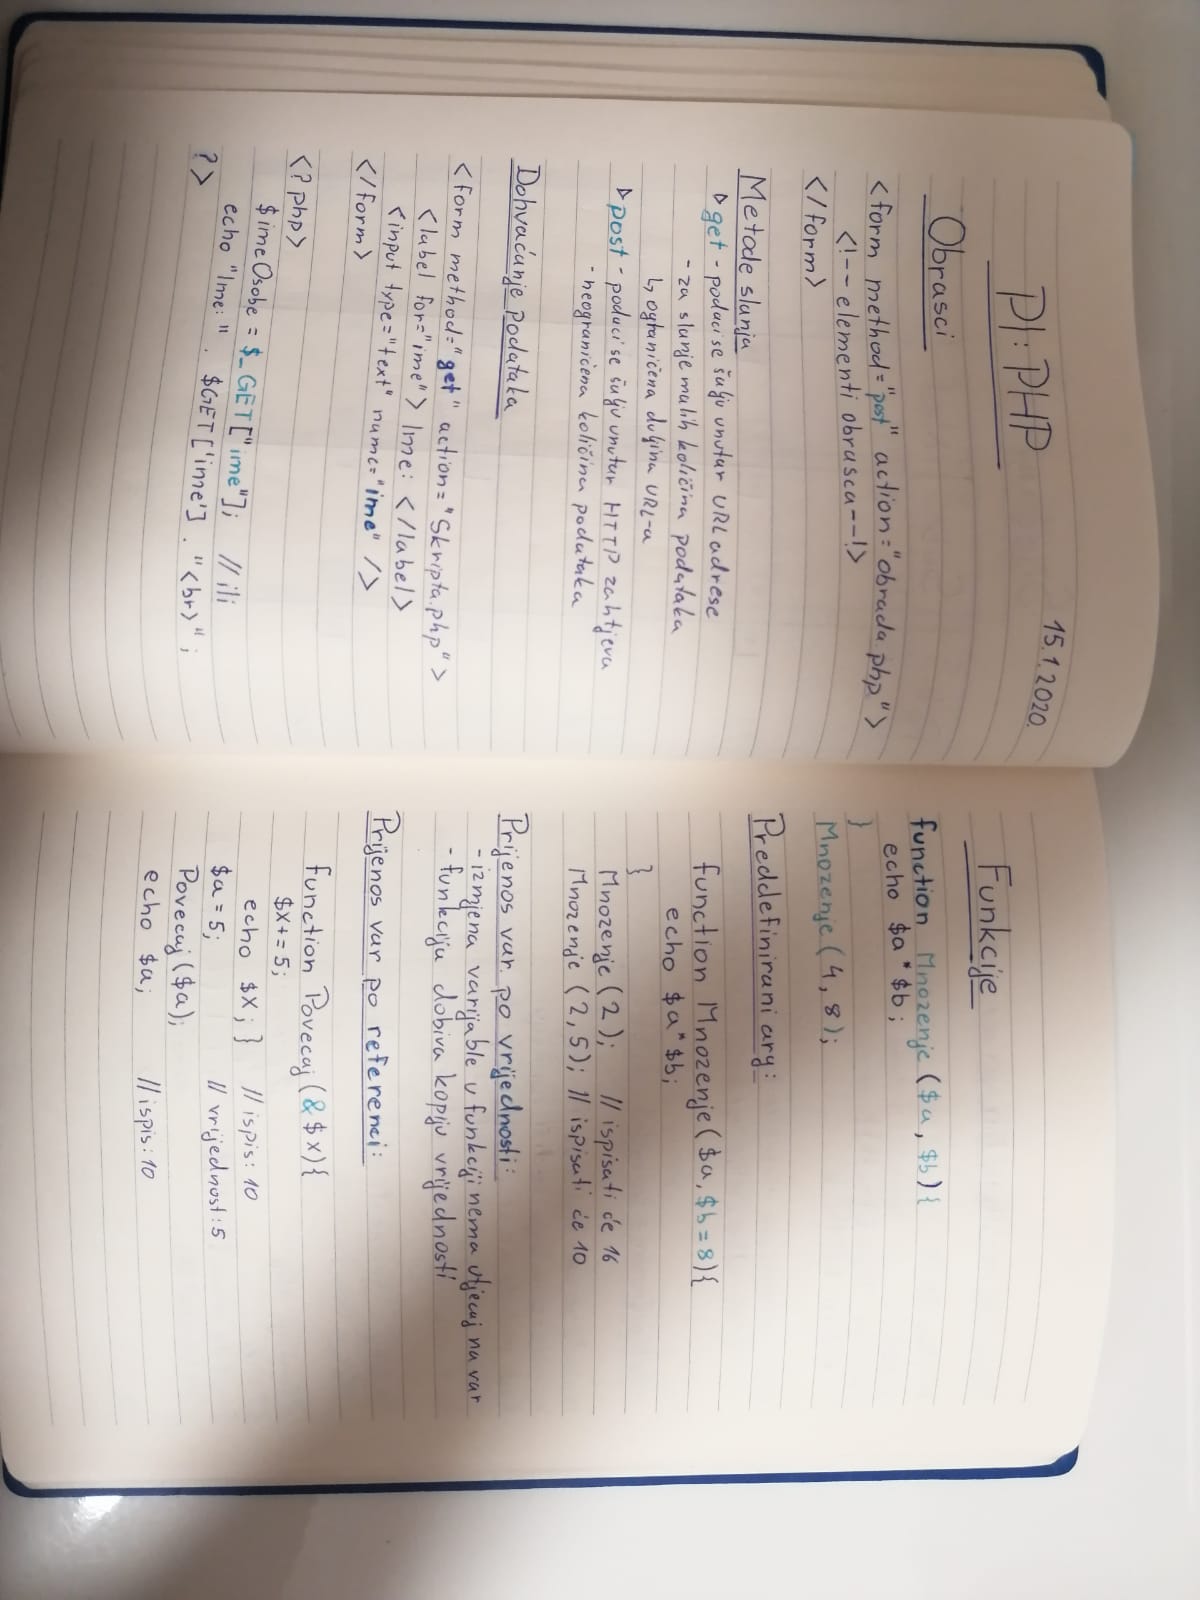 15.1.2020.
PI: PHP
Obrasci
<form method="post" action="obrada.php">
<!-- elementi obrasca--!>
</form>
Metode slanja
▷ get - podaci se šalju unutar URL adrese
- za slanje malih količina podataka
↳ ograničena duljina URL-a
▷ post - podaci se šalju unutar HTTP zahtjeva
- neograničena količina podataka
Dohvaćanje podataka
<form method="get" action="Skripta.php">
<label for="ime"> Ime: </label>
<input type="text" name="ime" />
</form>
<?php>
$imeOsobe = $_GET["ime"]; // ili
echo "Ime: " . $GET['ime'] . "<br>";
?>
Funkcije
function Mnozenje ($a, $b){
echo $a*$b;
}
Mnozenje(4, 8);
Preddefinirani arg:
function Mnozenje($a, $b=8){
echo $a*$b;
}
Mnozenje(2); // ispisati će 16
Mnozenje (2,5); // ispisati će 10
Prijenos var. po vrijednosti:
- izmjena varijable u funkciji nema utjecaj na var
- funkcija dobiva kopiju vrijednosti
Prijenos var po referenci:
function Povecaj(&$x){
$x+=5;
echo $x; } // ispis: 10
$a = 5; // vrijednost: 5
Povecaj($a);
echo $a; // ispis: 10